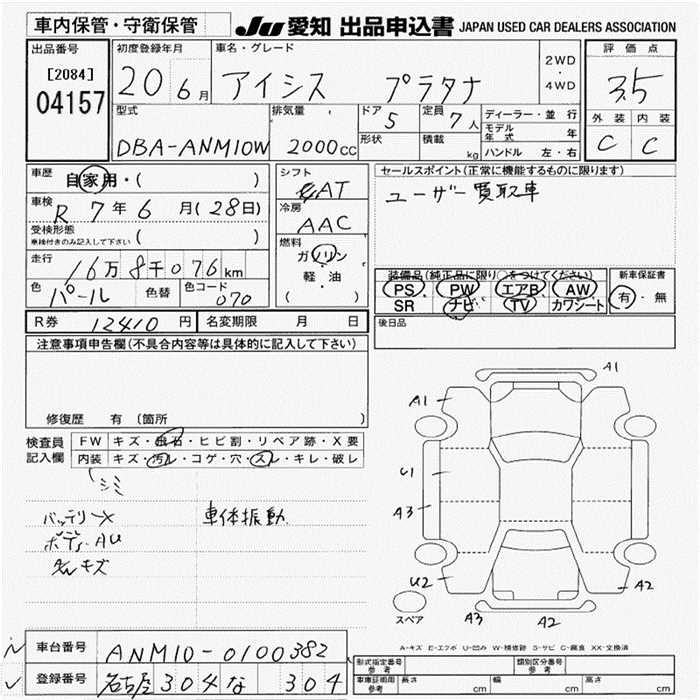 車内保管・守衛保管 JU 愛知 出品申込書 JAPAN USED CAR DEALERS ASSOCIATION
出品番号 初度登録年月 車名・グレード 2WD・4WD 評価点
[2084] 20 6月 アイシス プラタナ 3.5
04157
型式 排気量 ドア 定員 ディーラー・並行 外装 内装
5 7人 モデル年式 年 C C
DBA-ANM10W 2000CC 形状 積載 kg ハンドル 左・右
車歴 自家用・( ) シフト AT セールスポイント(正常に機能するものに限ります)
車検 R 7年 6月(28日) 冷房 AAC ユーザー買取車
受検形態 車検付きのみ記入して下さい ( )
燃料 ガソリン 軽・油 ( )
走行 16万8千076km 装備品(純正品に限り○をつけてください) 新車保証書
色 パール 色替 色コード 070 PS PW エアB AW 有・無
SR ナビ TV カワシート
R券 12410円 名変期限 月 日 後日品
注意事項申告欄(不具合内容等は具体的に記入して下さい)
修復歴 有 (箇所 )
検査員 FW キズ・飛石・ヒビ割・リペア跡・X要
記入欄 内装 キズ・汚レ・コゲ・穴・スレ・キレ・破レ
シミ
バッテリーX 車体振動
ボディAU
キズ
A1
A1
U1
A3
U2
A2
A3
A2
スペア
A-キズ E-エクボ U-凹み W-補修跡 S-サビ C-腐食 XX-交換済
車台番号 ANM10-0100382
登録番号 名古屋 304 な 304
形式指定番号 参考 類別区分番号 参考
車庫証明用 参考 長さ cm 幅 cm 高さ cm